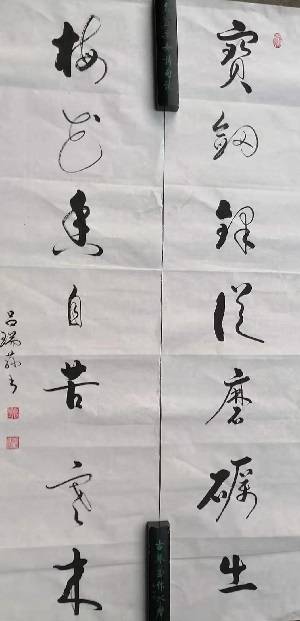 寶劍鋒從磨礪生
梅花香自苦寒來
吕瑞